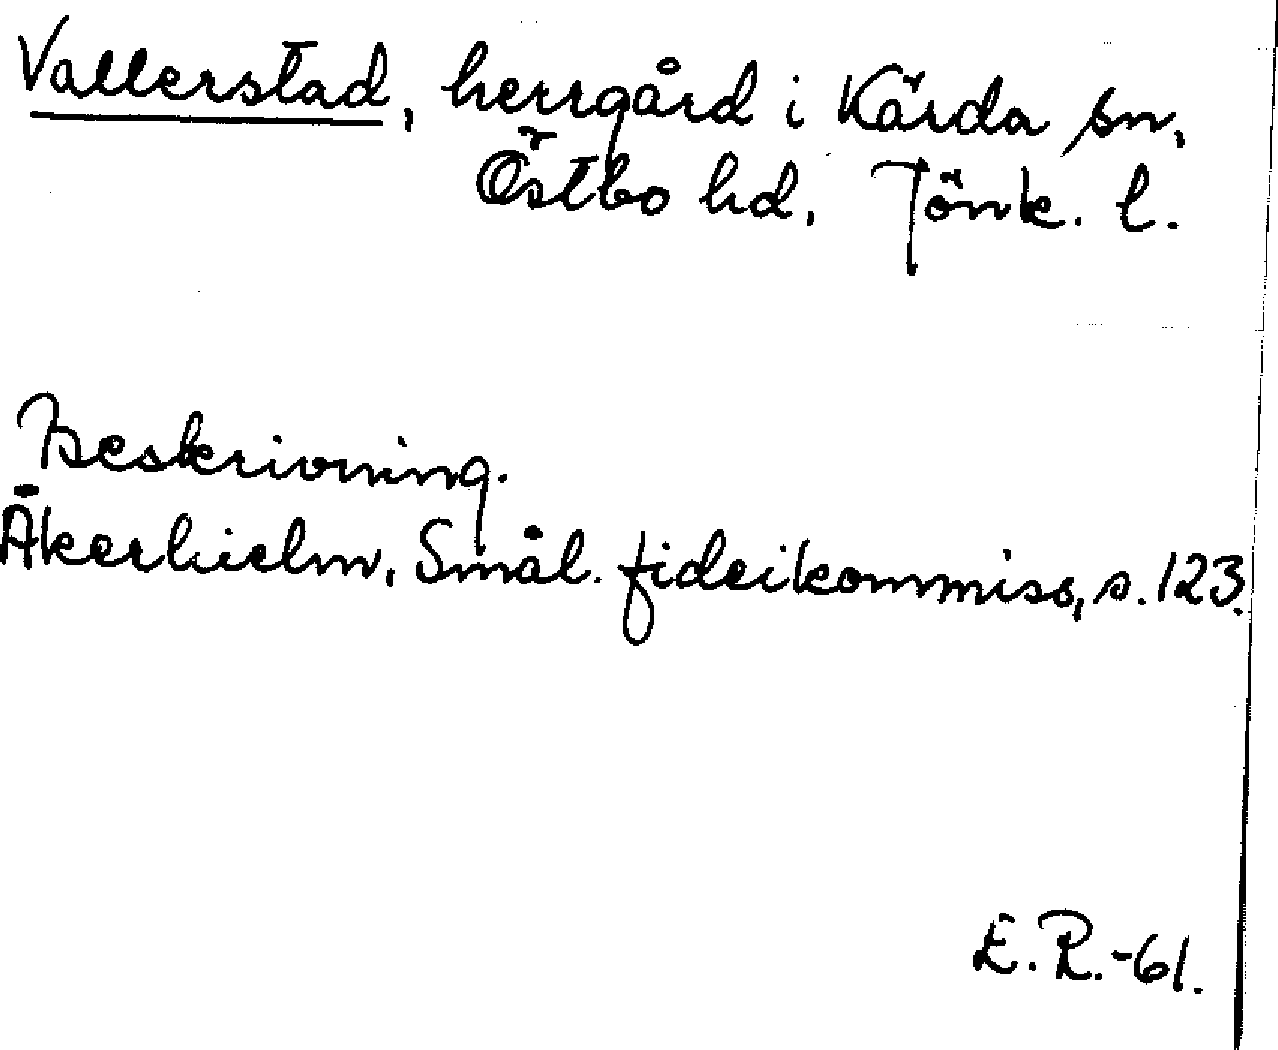 Vallerstad, herrgård i Kärda sn,
Östbo hd, Jönk. l.
Beskrivning.
Åkerhielm, Smål. fideikommiss, s. 123.
E.R.-61.